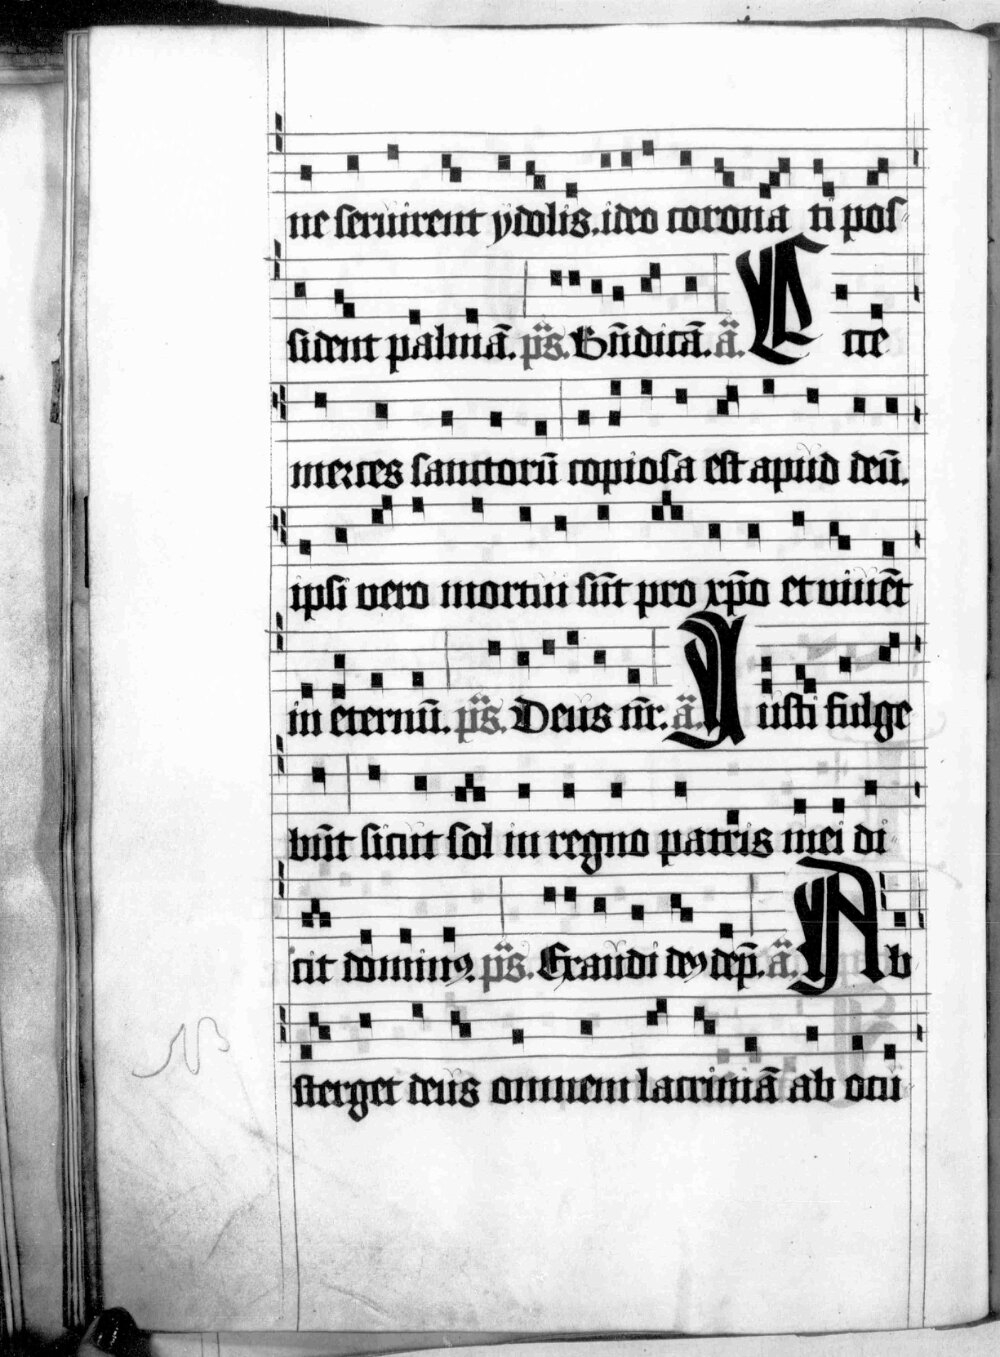 ne seruirent ydolis. ideo corona ti pos-
sident palmā. p̄s. Bn̄dicā. ā. Ecce
merces sanctorū copiosa est apud deū.
ipsi vero mortui sūt pro xp̄o et viuēt
in eternū. p̄s. Deus nr̄. ā. Iusti fulge
būt sicut sol in regno patris mei di-
cit domin⁹. p̄s. Exaudi de⁹ dep̄. ā. Ab
sterget deus omnem lacrimā ab ocu-